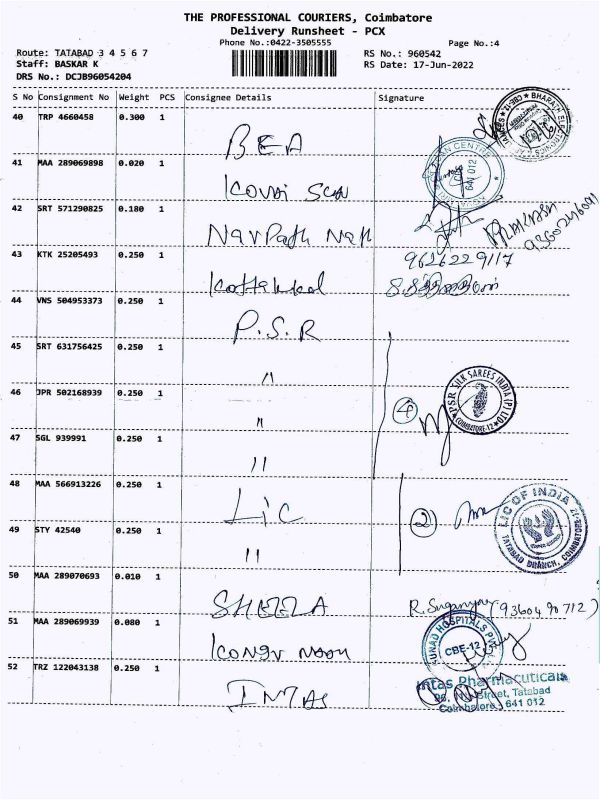 THE PROFESSIONAL COURIERS, Coimbatore
Delivery Runsheet - PCX
Phone No.:0422-3505555
Page No.:4
Route: TATABAD 3 4 5 6 7
RS No.: 960542
Staff: BASKAR K
RS Date: 17-Jun-2022
DRS No.: DCJB96054204
S No Consignment No Weight PCS Consignee Details Signature
40 TRP 4660458 0.300 1
BEA
41 MAA 289069898 0.020 1
641 012
Kovai Scan
42 SRT 571290825 0.180 1
PRAKASH
9360246091
43 KTK 25205493 0.250 1
9626229117
Kottakkal
44 VNS 504953373 0.250 1
P.S.R
45 SRT 631756425 0.250 1
"
46 JPR 502168939 0.250 1
4
PSR SILK SAREES INDIA (P) LTD
COIMBATORE-12
"
47 SGL 939991 0.250 1
"
48 MAA 566913226 0.250 1
LIC
2
LIC OF INDIA
TATABAD BRANCH, COIMBATORE-12
49 STY 42540 0.250 1
"
50 MAA 289070693 0.010 1
SHEELA
R. Suganya (9360490712)
51 MAA 289069939 0.080 1
CBE-12
52 TRZ 122043138 0.250 1
Intas Pharmaceuticals
Street, Tatabad
Coimbatore - 641 012
INTAS